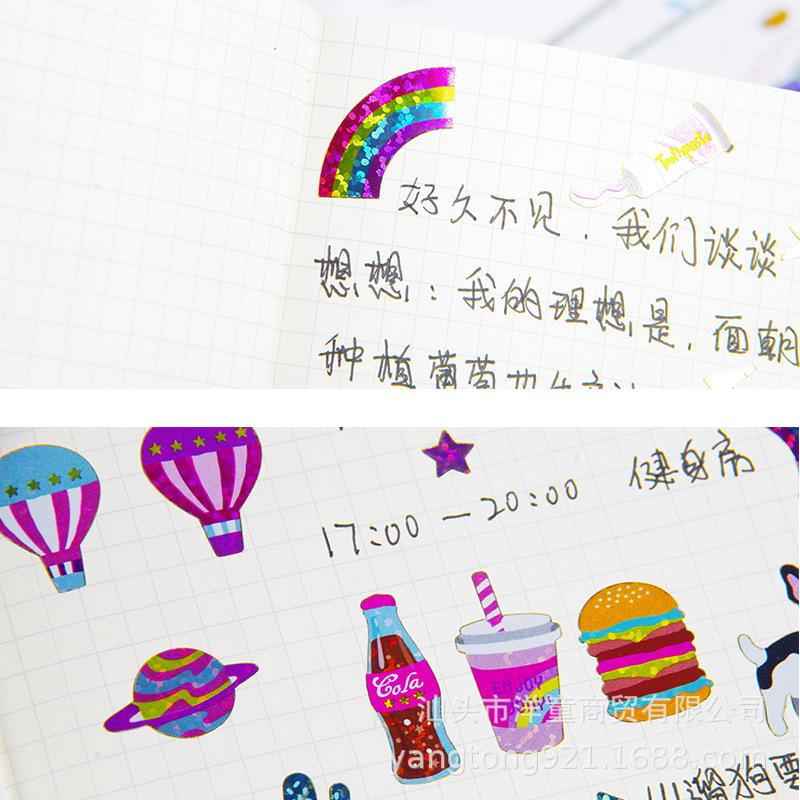 Toothpaste
好久不见，我们谈谈
想想：我的理想是，面朝
种植葡萄
健身房
17:00 — 20:00
Cola
ENJOY
汕头市洋童商贸有限公司
yangtong921.1688.com
遛狗